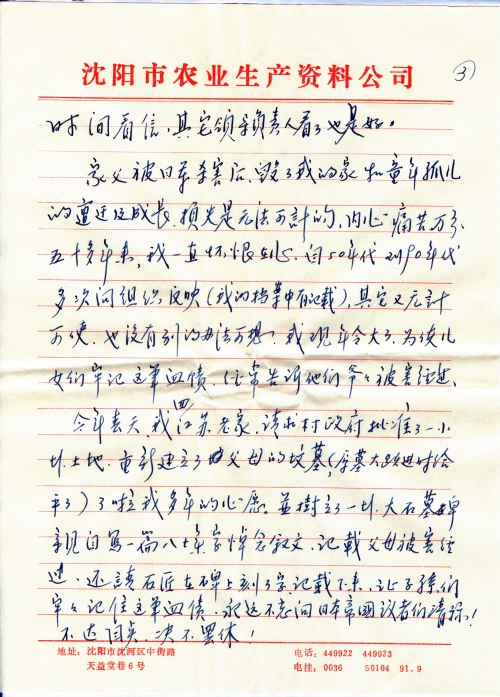 ③
沈阳市农业生产资料公司
时间看信,其它领导负责人看了也是好。
家父被日本杀害后,毁了我的家和童年孤儿
的遭遇及成长,损失是无法可计的,内心痛苦万分,
五十多年来,我一直怀恨在心,自50年代到90年代
多次向组织反映(我的档案中有记载),其它又无计
可使,也没有别的办法可想,我现年令大了,为使儿
女们牢记这笔血债,经常告诉他们爷爷被害经过,
今年春天,我回江苏老家,请求村政府批准了一小
圳土地,重新建立了父母的坟墓,(原墓大跃进时给
平了)了啦我多年的心愿,並樹立了一圳大石墓碑
亲自写一篇八十年家悼念叙文,记载父母被害经
过,还請石匠在碑上刻了字,记载下来,让子孫们
牢牢记住这笔血债,永远不忘向日本帝國议者们清祘!
不达目矣,决不罢休!
地址:沈阳市沈河区中街路
天益堂巷6号
电话:449922 449923
电挂:0036 50104 91.9